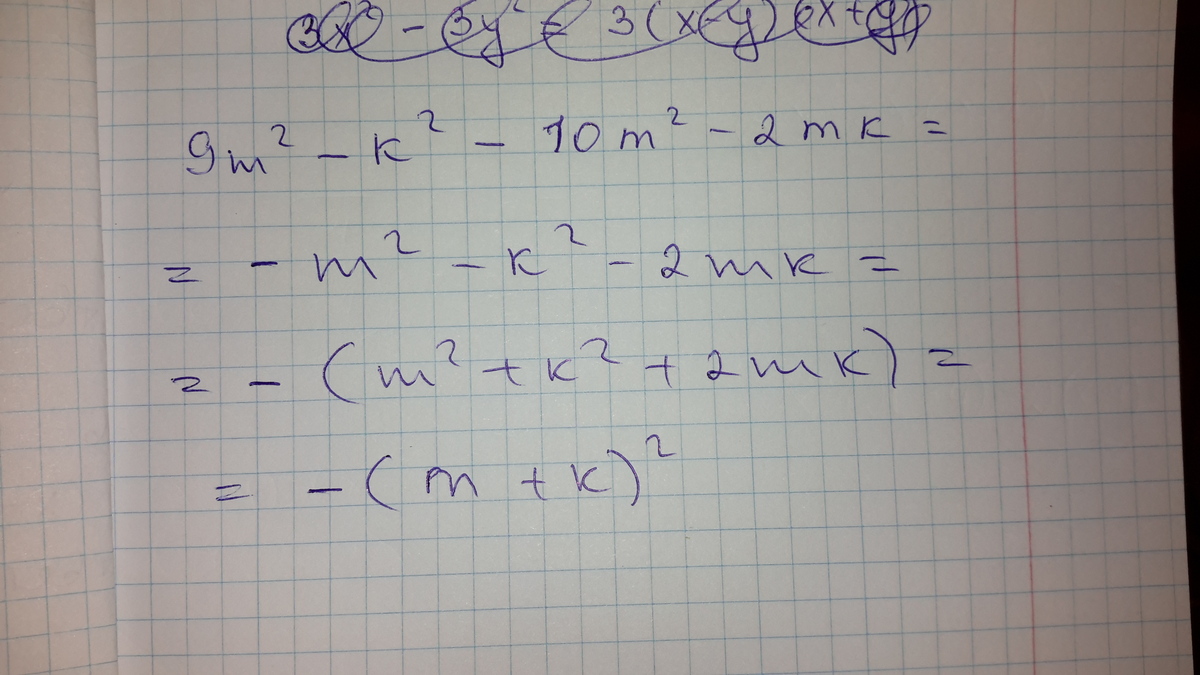 3x² - 3y² = 3(x-y)(x+y)
9m² - k² - 10m² - 2mk =
= - m² - k² - 2mk =
= - (m² + k² + 2mk) =
= - (m + k)²